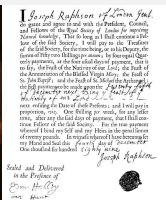 I Joseph Raphson of London Gent.
do grant and agree to and with the President, Council,
and Fellows of the Royal Society of London for improving
Natural Knowledge, That so long as I shall continue a Fel-
low of the said Society, I will pay to the Treasurer
of the said Society, for the time being, or to his Deputy, the
Summ of fifty two shillings per annum, by four equal Quar-
terly payments, at the four usual days of payment, that is
to say, the Feast of the Nativity of our Lord; the Feast of
the Annunciation of the Blessed Virgin Mary; the Feast of
St. John Baptist; and the Feast of St. Michael the Archangel:
the first payment to be made upon the twenty fifth
of December next
Nativity of our Lord
next ensuing the Date of these Presents; and I will pay in
proportion, viz. One shilling per week, for any lesser
time, after any the said days of payment, that I shall con-
tinue Fellow of the said Society. For the true payment
whereof I bind my self and my Heirs in the penal Summ
of twenty pounds. In witness whereof I have hereunto set
my Hand and Seal this fourth day of December
One thousand six hundred eighty nine
Joseph Raphson
Sealed and Delivered
in the Presence of
Hen: Hunt